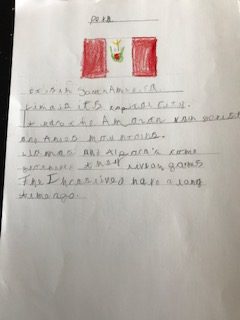 Peru
It is in South America
Lima is it's capital City.
It has the Amazon rain forest
and Andes mountains.
Llamas and Alpaca's come
they
The Incas lived here a long
time ago.